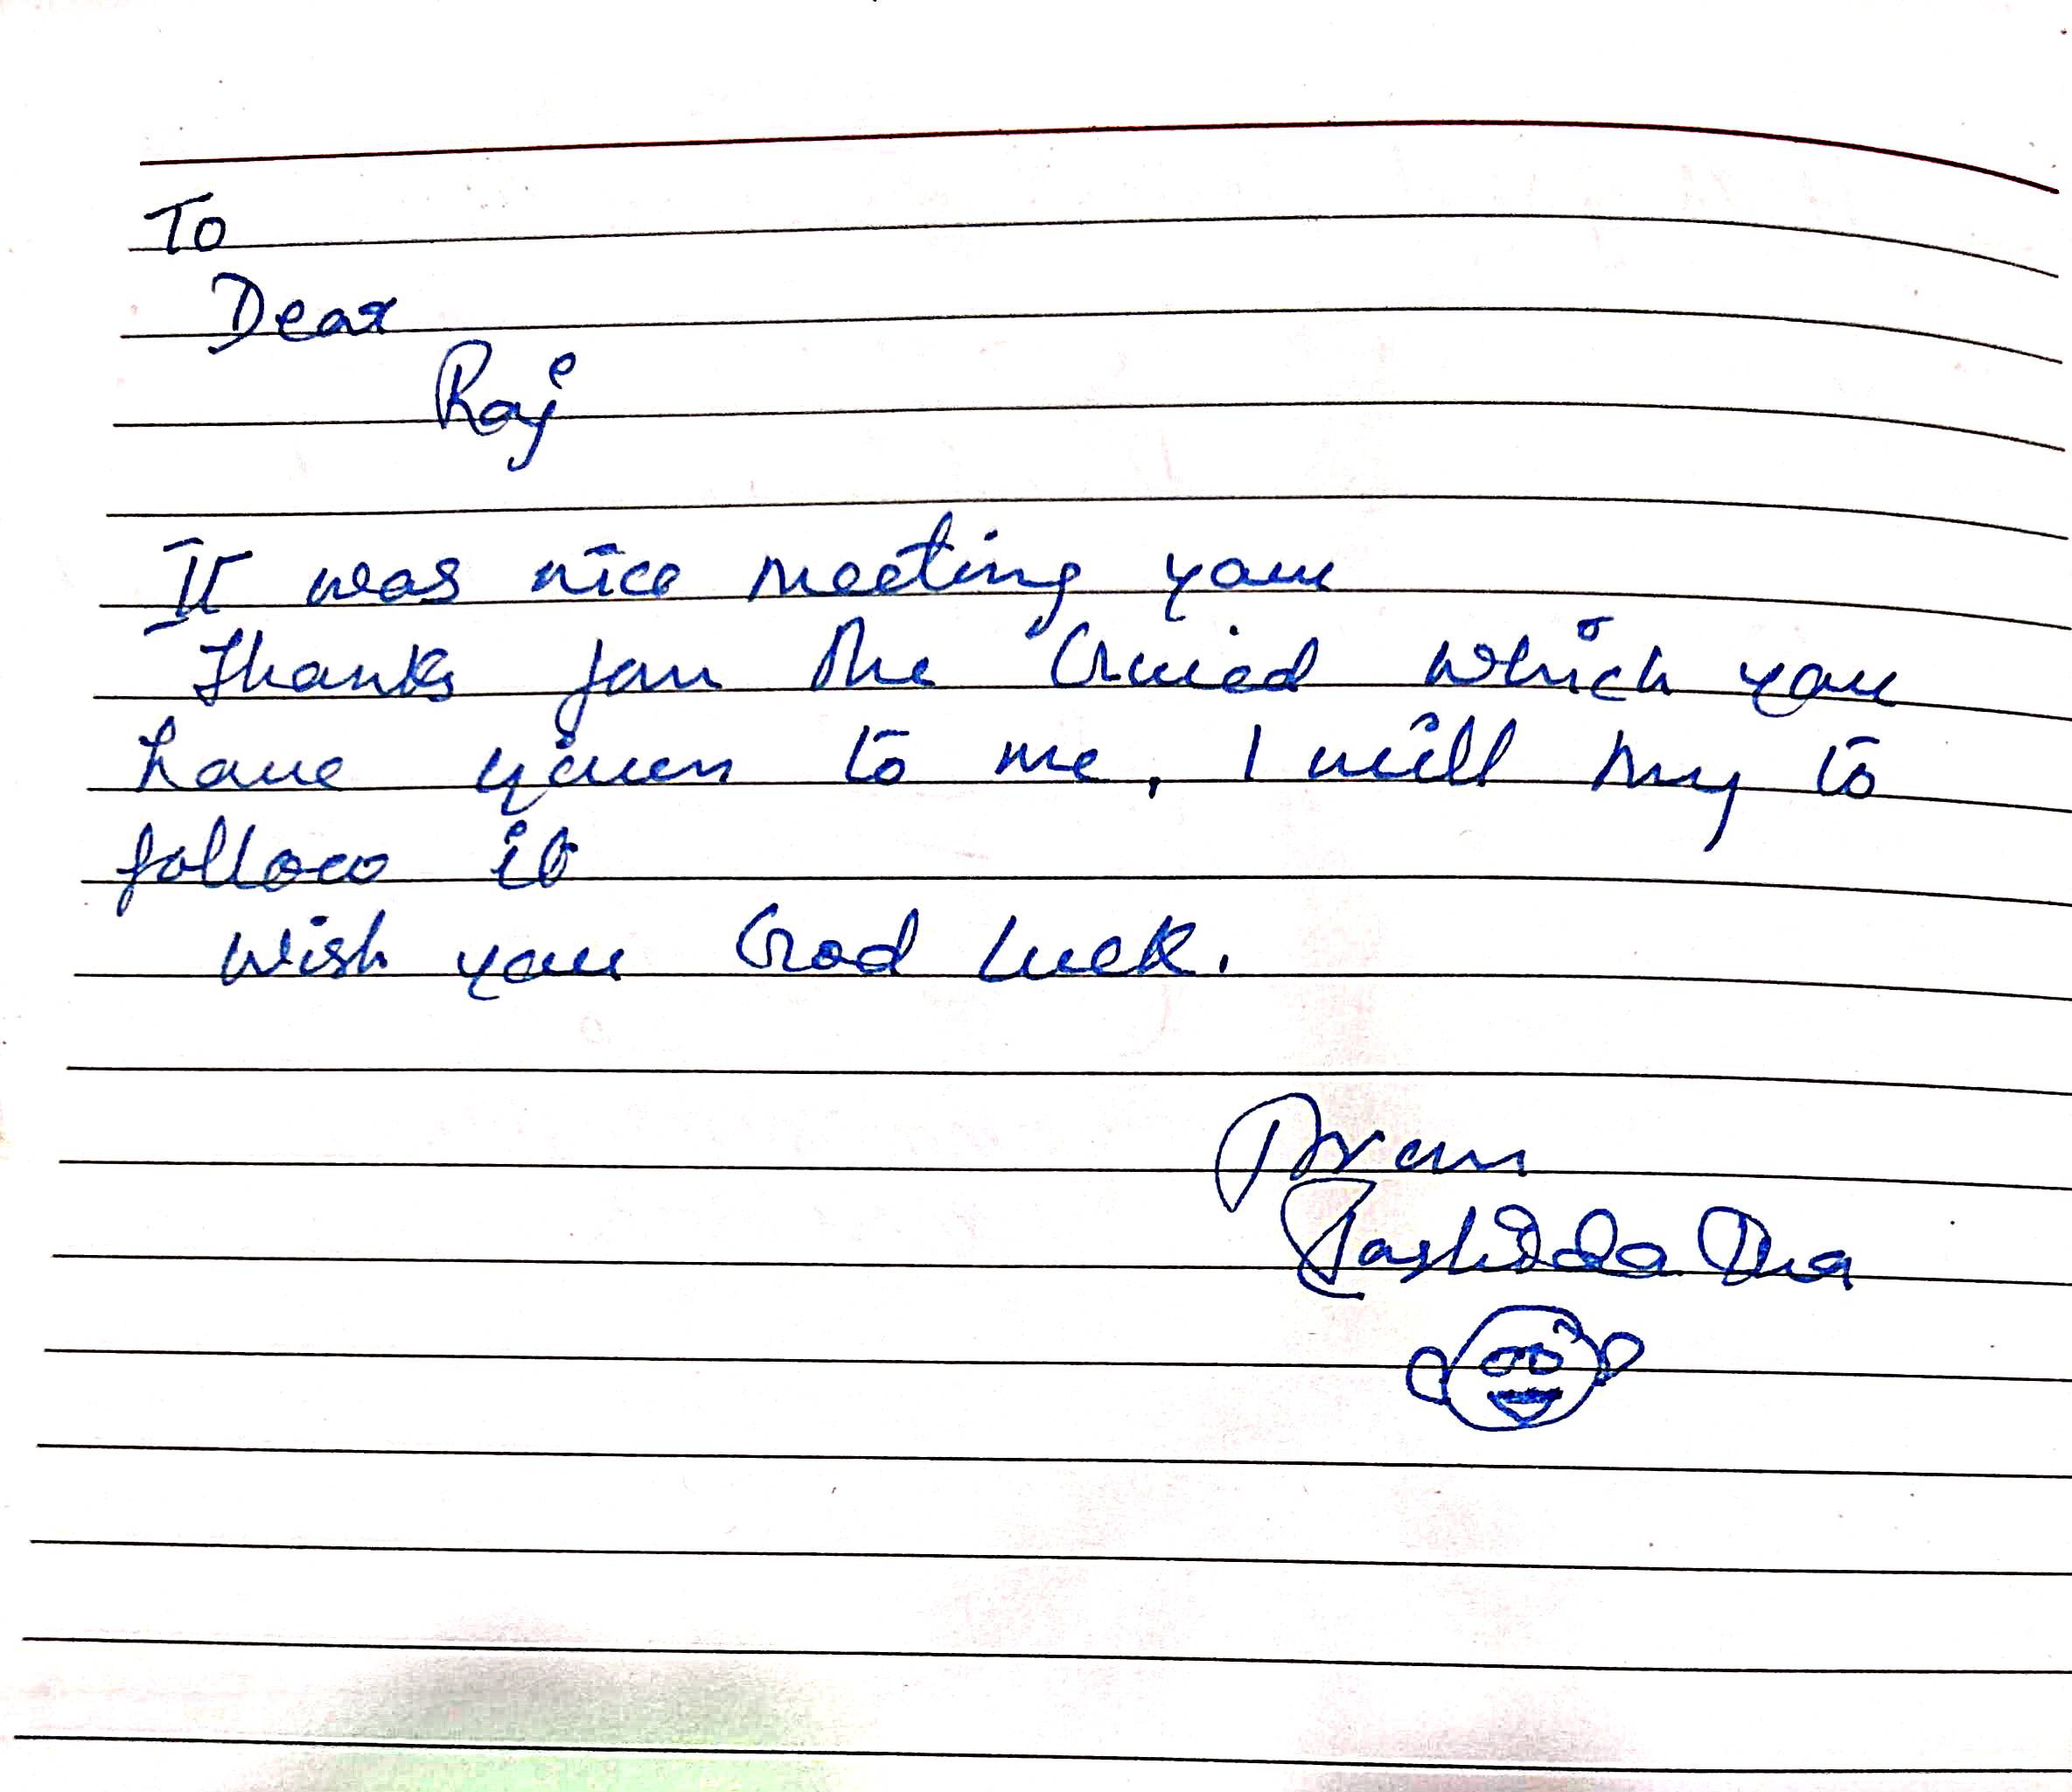 To
Dear
Raj
It was nice meeting you
Thanks for the Guied which you
have given to me, I will try to
follow it
Wish you Good luck.